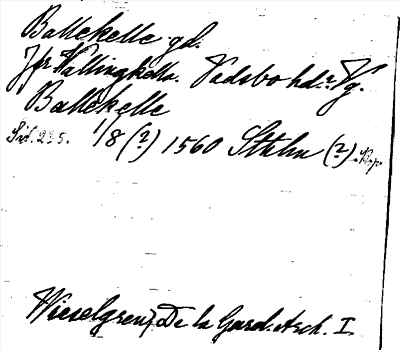 Ballekelle gd.
Jfr Vallingkälla. Vadsbo hd: Vg.
Ballekelle
Sid. 235. 1/8 (?) 1560 Sthlm (?)
Wieselgren, De la Gard. Arch. I.